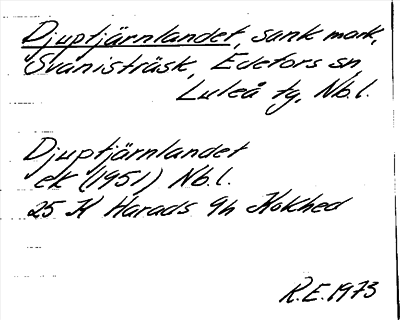 Djuptjärnlandet, sank mark,
Svanisträsk, Edefors sn,
Luleå tg, Nb.l.
Djuptjärnlandet
ek (1951) Nb.l.
25 K Harads 9h Kokhed
R.E. 1973